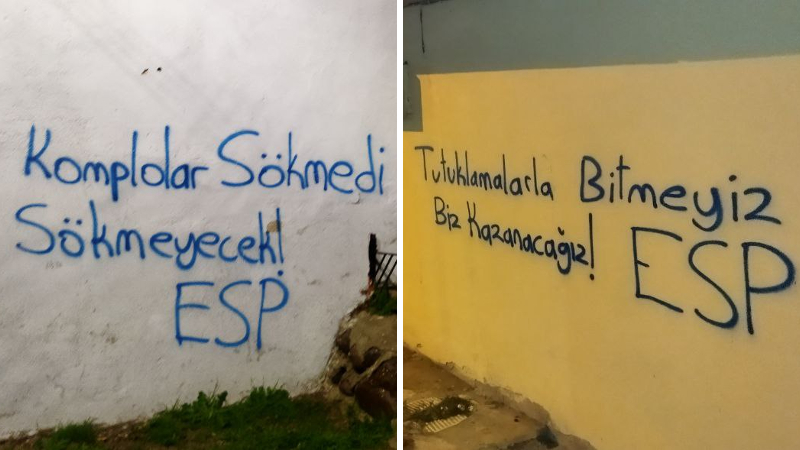 Komplolar Sökmedi
Sökmeyecek!
ESP
Tutuklamalarla Bitmeyiz
Biz Kazanacağız!
ESP